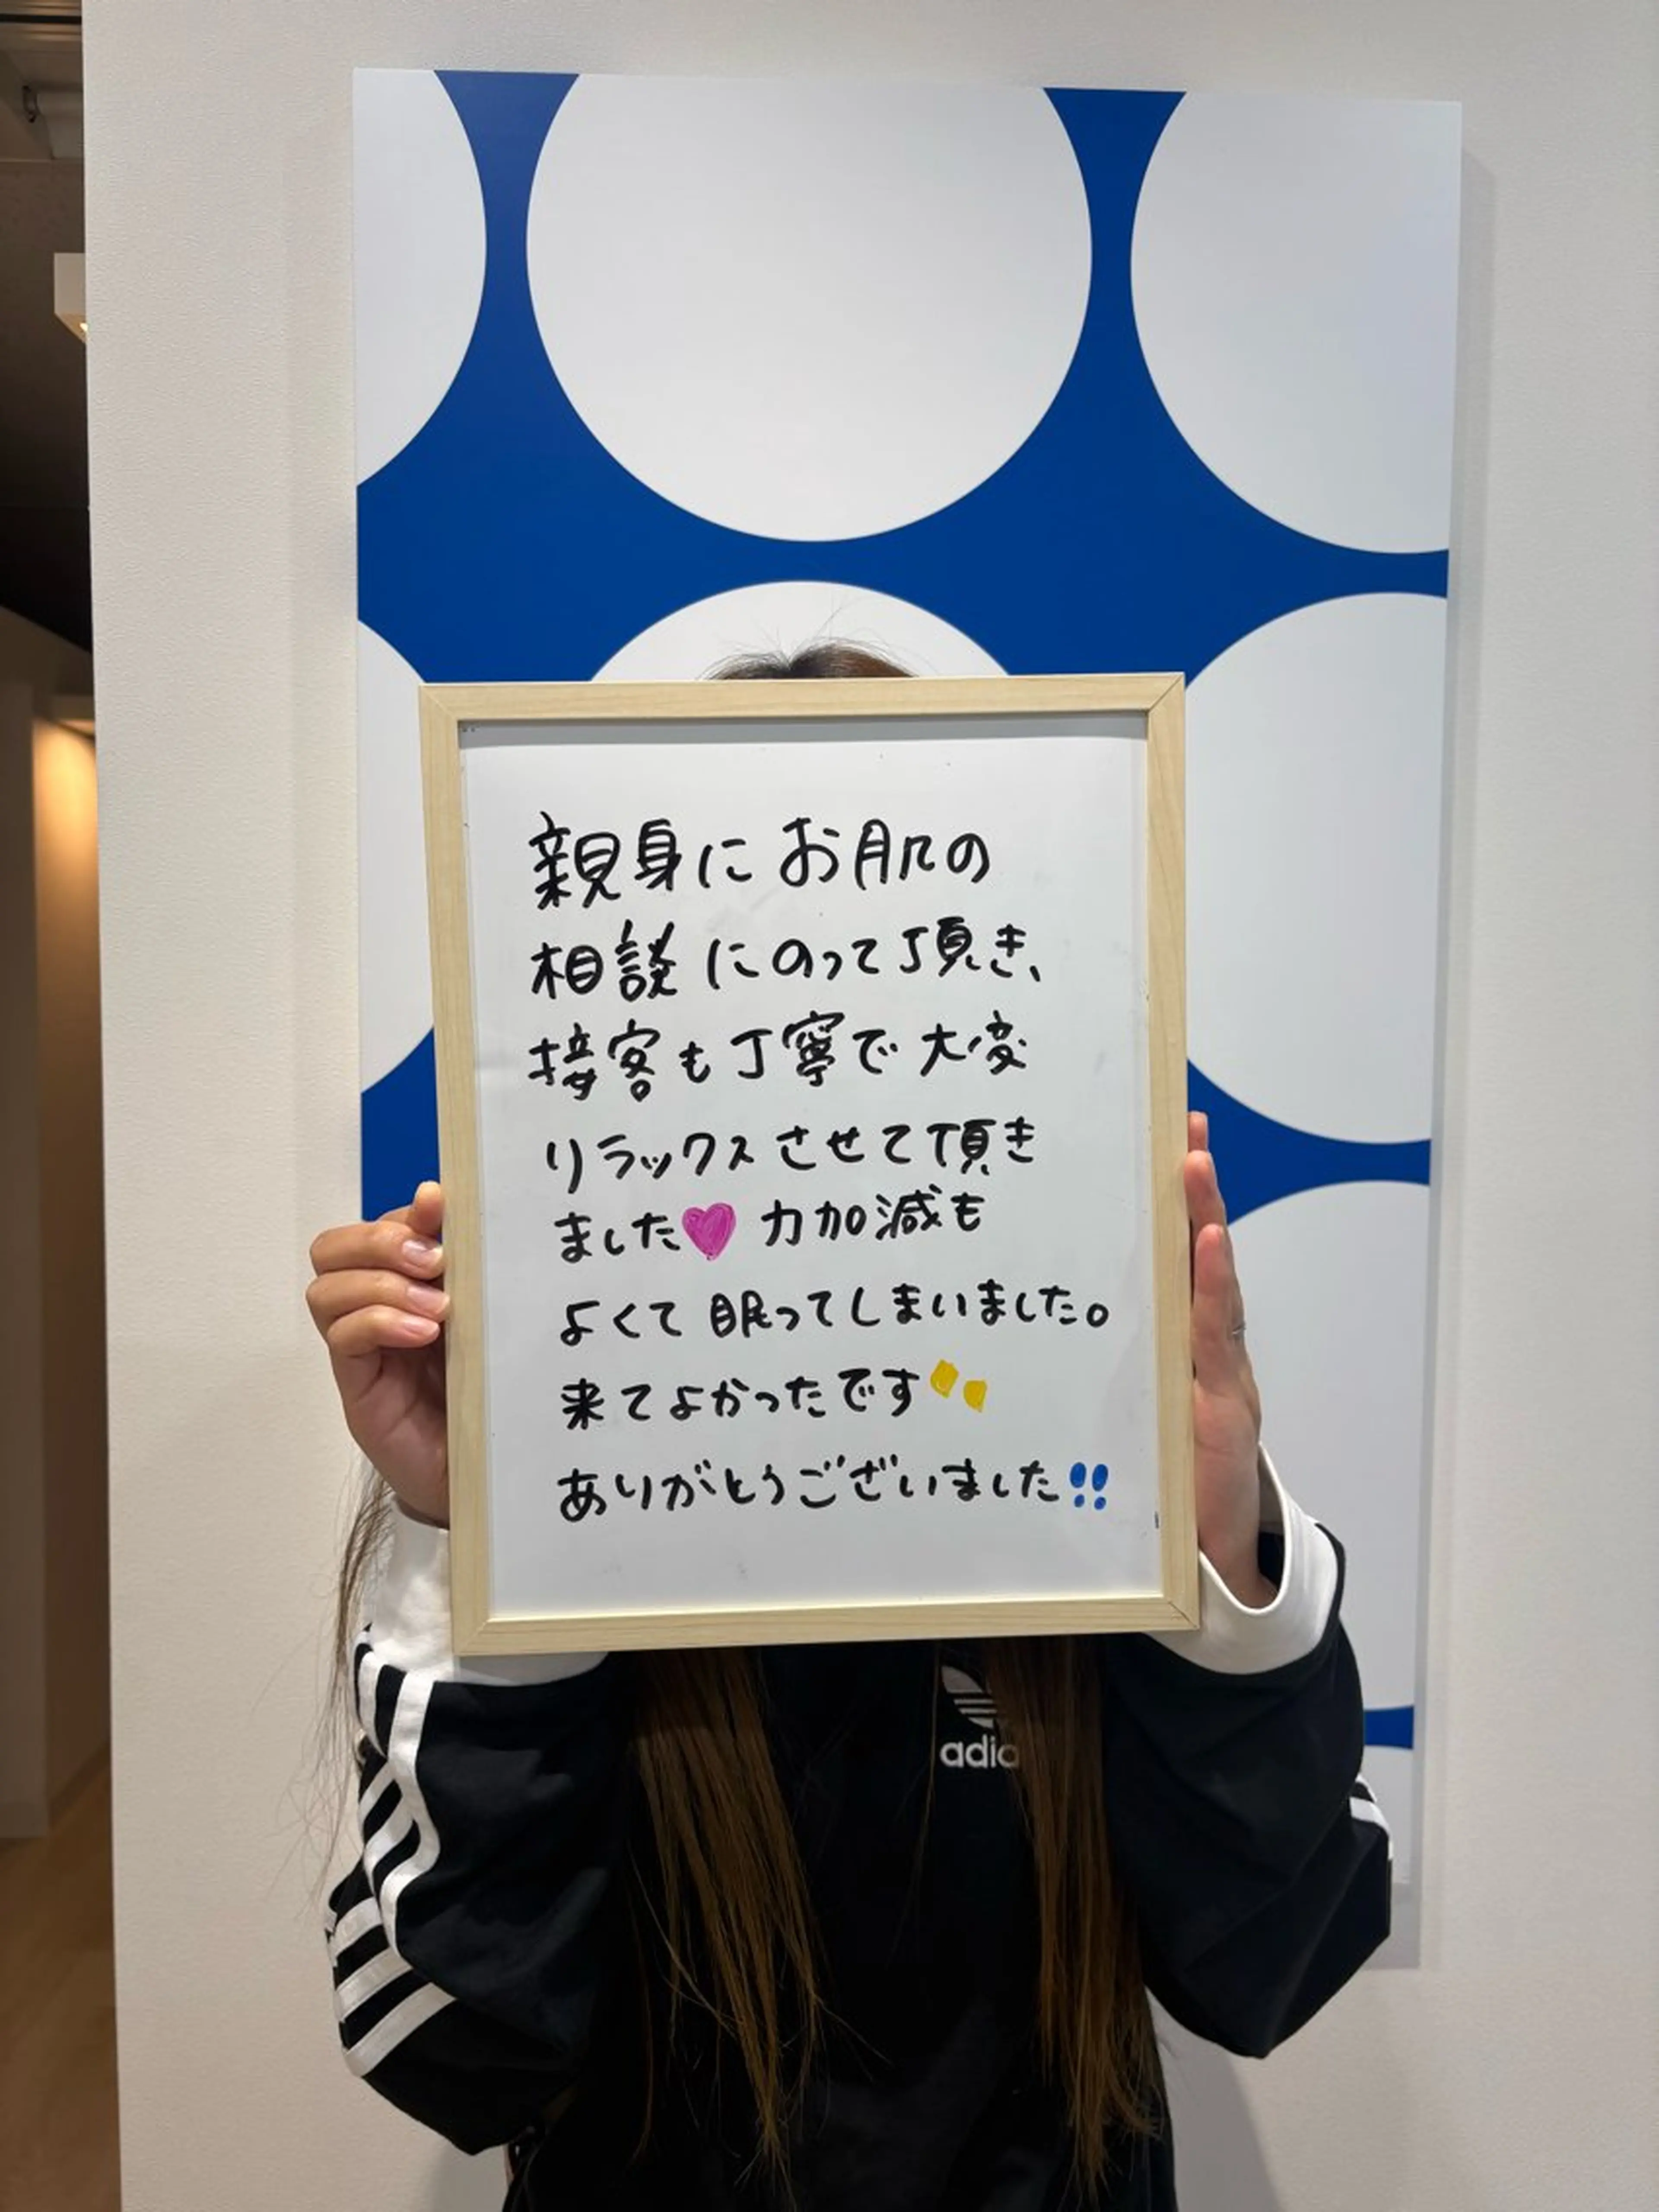 親身にお肌の
相談にのって頂き、
接客も丁寧で大変
リラックスさせて頂き
ました♥力加減も
よくて眠ってしまいました。
来てよかったです
ありがとうございました!!
adid